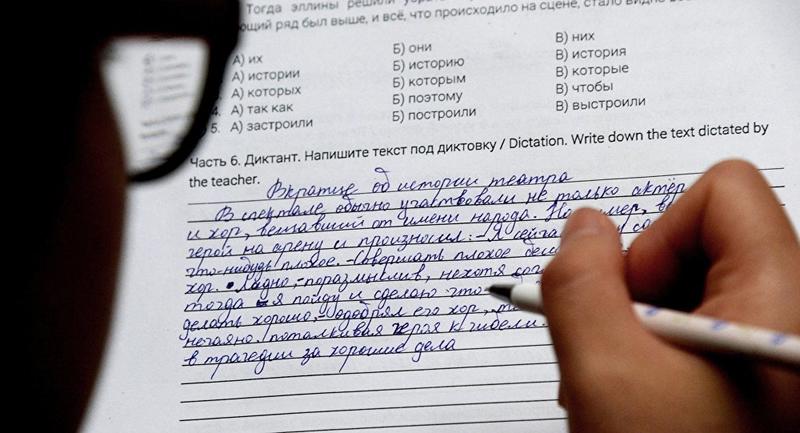 Тогда эллины решили
ющий ряд был выше, и всё, что происходило на сцене, стало видно
А) их Б) они В) них
А) истории Б) историю В) история
А) которых Б) которым В) которые
4. А) так как Б) поэтому В) чтобы
5. А) застроили Б) построили В) выстроили
Часть 6. Диктант. Напишите текст под диктовку / Dictation. Write down the text dictated by
the teacher.
Вкратце об истории театра
В спектакле обычно участвовали не только актёр
и хор, вещавший от имени народа.
герой на арену и произносил: - Я сейча
что-нибудь плохое. - Совершать плохое
хор. Ладно, - поразмыслив, нехотя
тогда я пойду и сделаю что
делать хорошо, - одобрял его хор,
нечаяно поталкивая героя к гибели.
в трагедии за хорошие дела